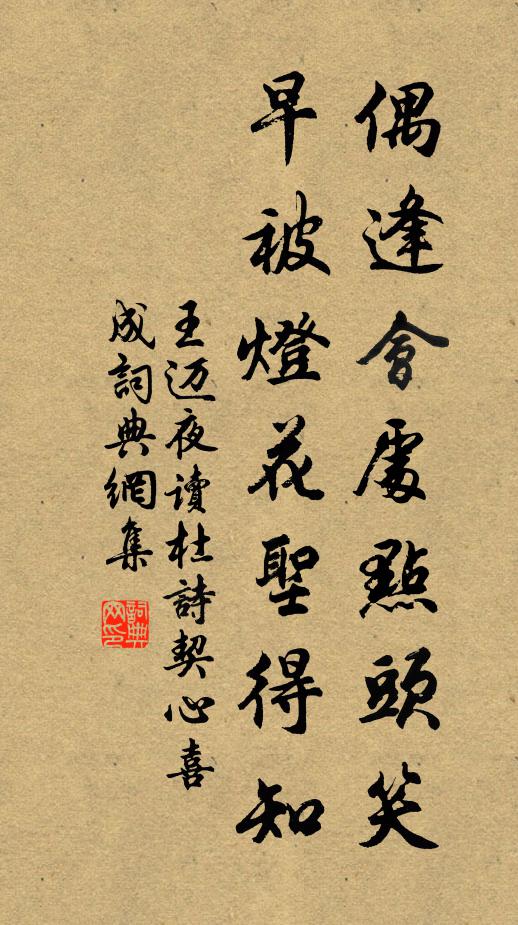 偶逢會處點頭笑
早被燈花聖得知
王迈夜讀杜詩契心喜
成詞典網集
詞典网印